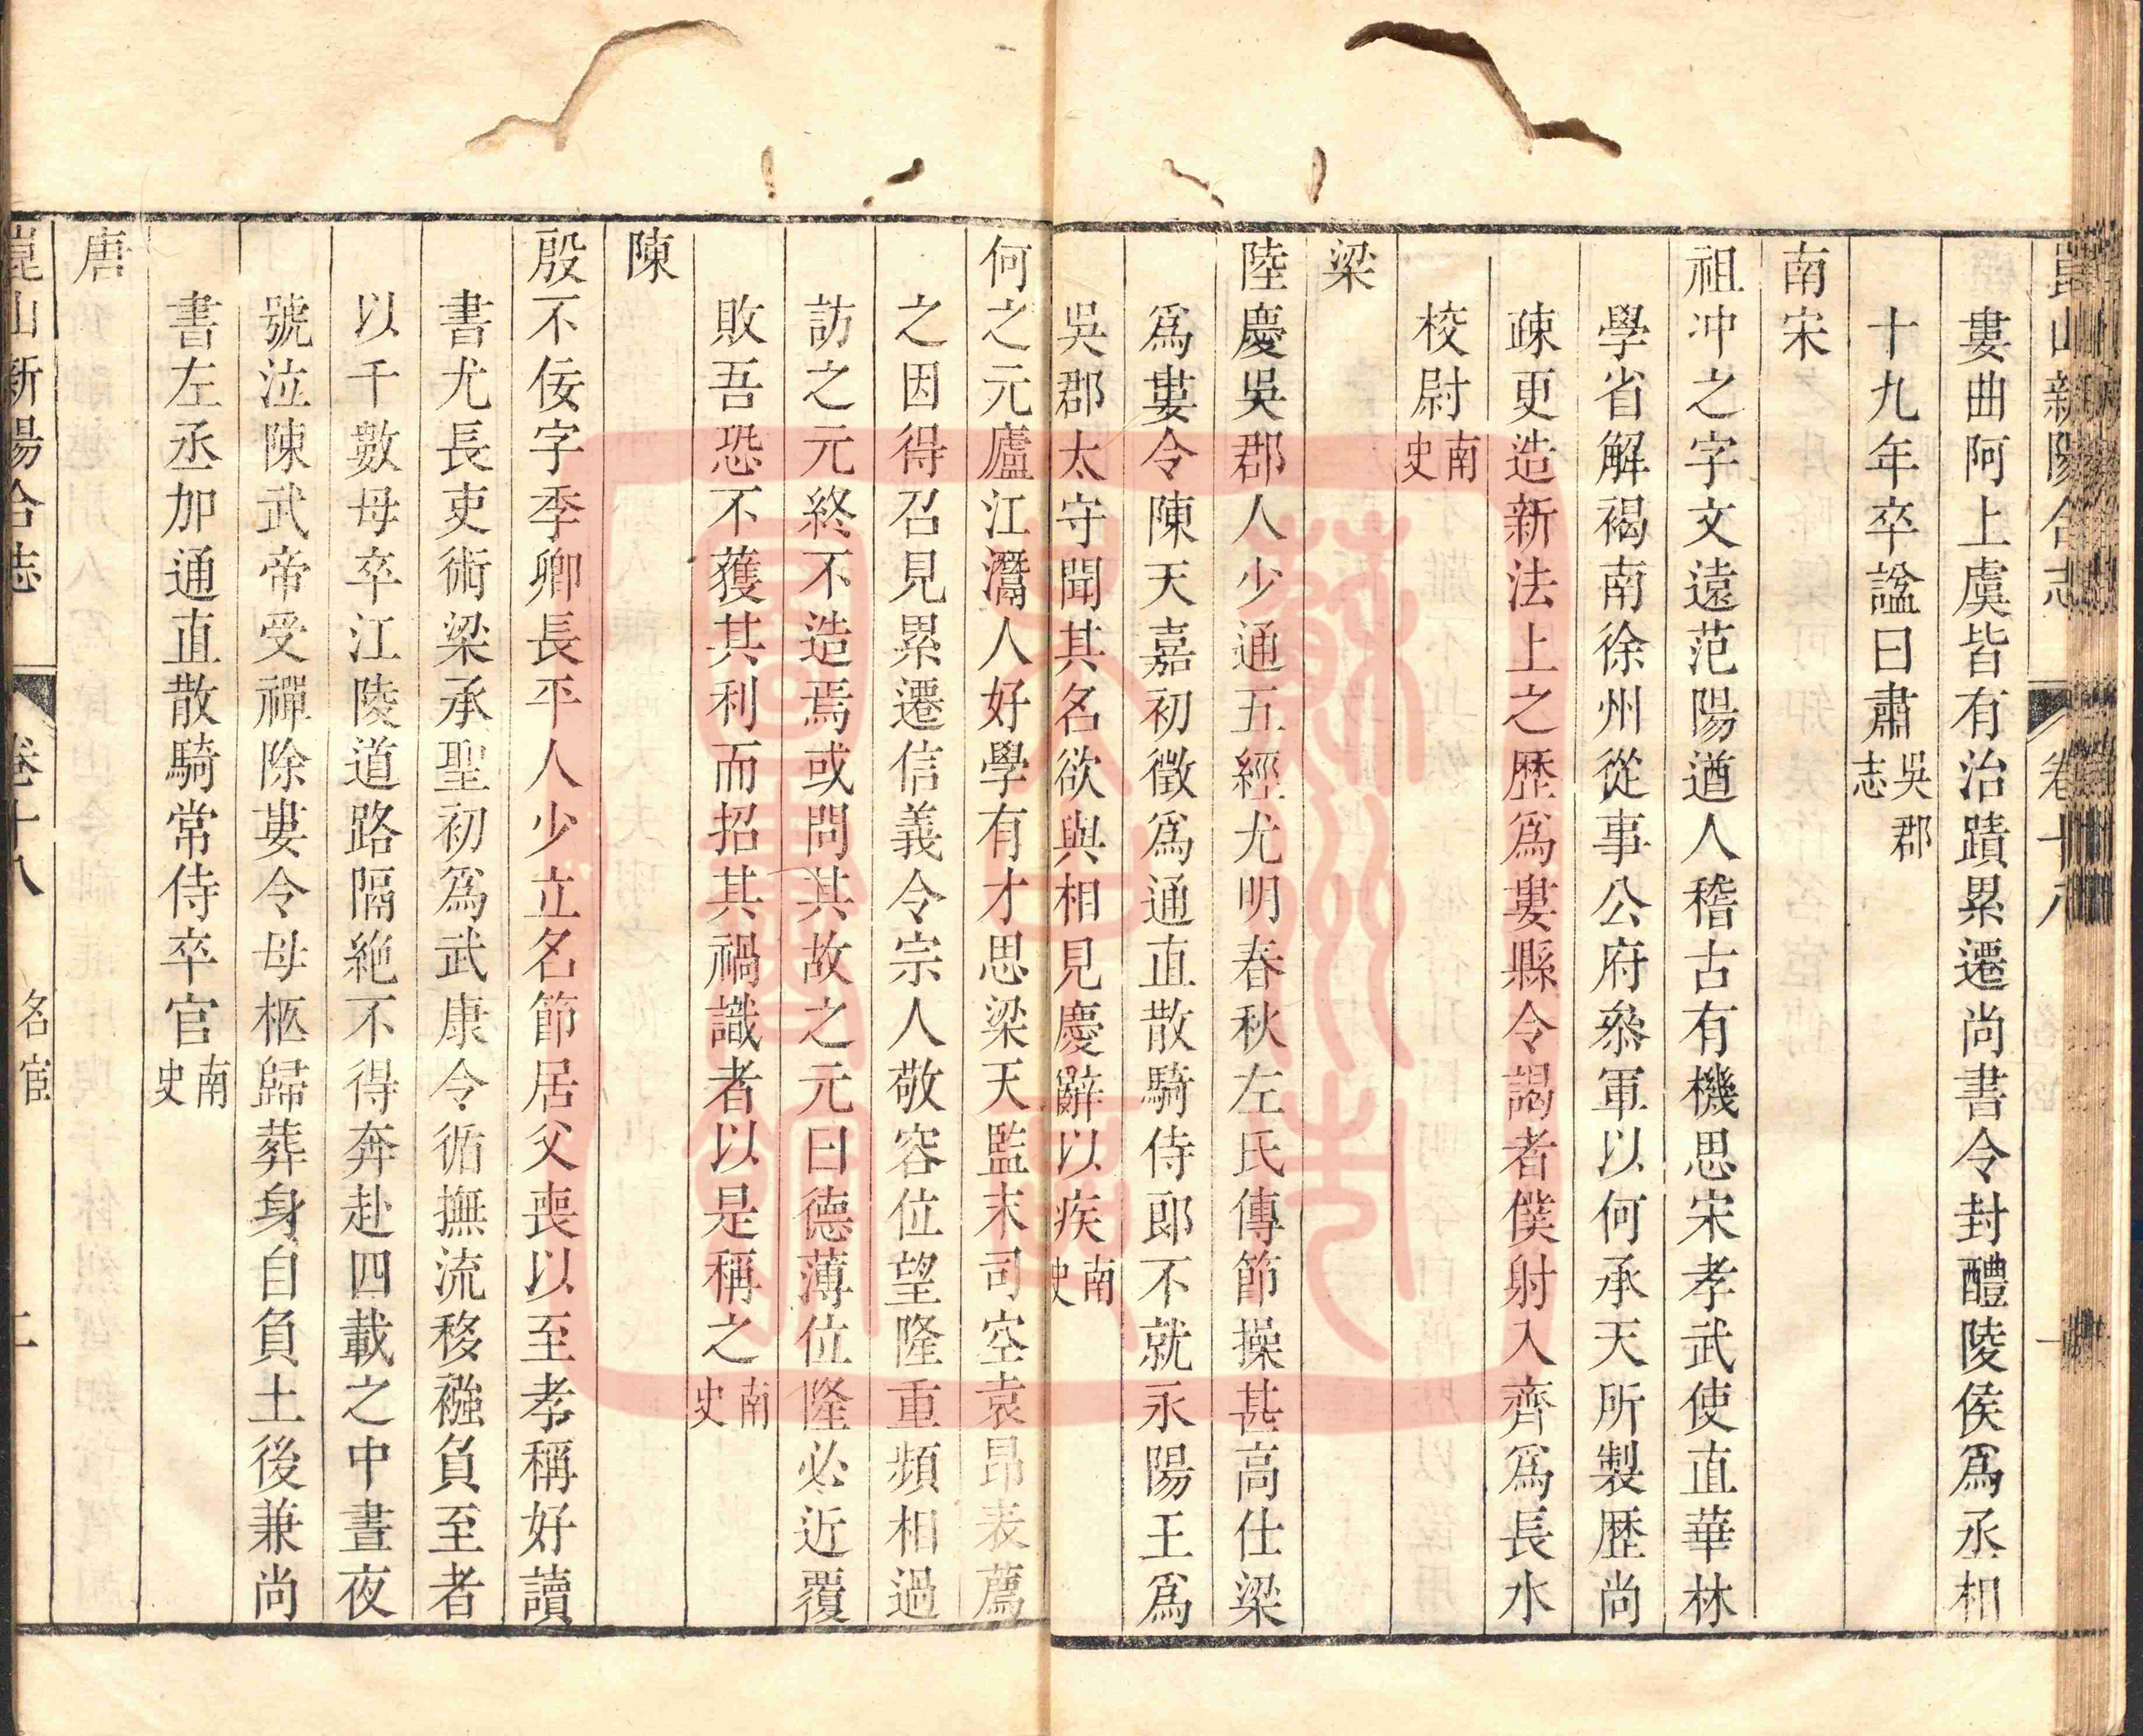 崑山新陽合志 卷十八 一
婁曲阿上虞皆有治蹟累遷尚書令封醴陵侯爲丞相
十九年卒諡曰肅吳郡志
南宋
祖冲之字文遠范陽遒人稽古有機思宋孝武使直華林
學省解褐南徐州從事公府叅軍以何承天所製歷尚
疎更造新法上之歷爲婁縣令謁者僕射入齊爲長水
校尉南史
梁
陸慶吳郡人少通五經尤明春秋左氏傳節操甚高仕梁
爲婁令陳天嘉初徵爲通直散騎侍郎不就永陽王爲
吳郡太守聞其名欲與相見慶辭以疾南史
何之元廬江灊人好學有才思梁天監末司空袁昂表薦
之因得召見累遷信義令宗人敬容位望隆重頻相過
訪之元終不造焉或問其故之元曰德薄位隆必近覆
敗吾恐不獲其利而招其禍識者以是稱之南史
陳
殷不佞字季卿長平人少立名節居父喪以至孝稱好讀
書尤長吏術梁承聖初爲武康令循撫流移襁負至者
以千數母卒江陵道路隔絶不得奔赴四載之中晝夜
號泣陳武帝受禪除婁令母柩歸葬身自負土後兼尚
書左丞加通直散騎常侍卒官南史
唐
崑山新陽合志 卷十八 名宦 二
蘇州市人民圖書館